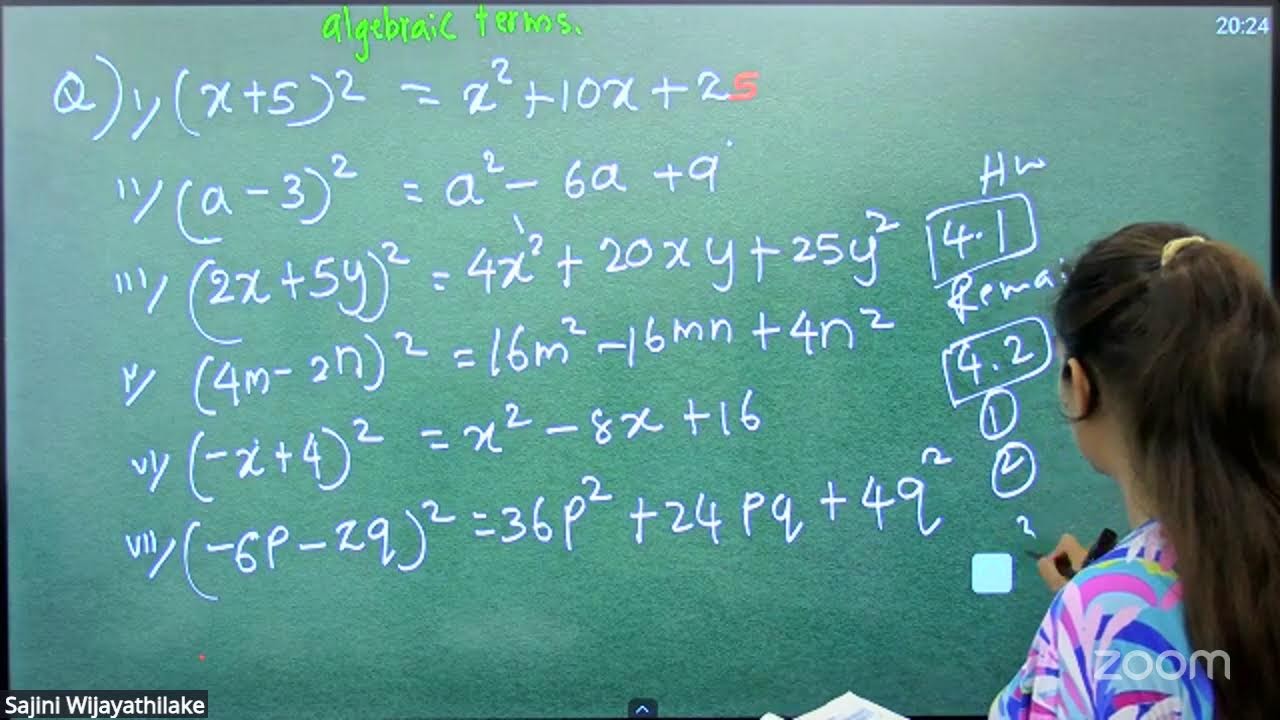 algebraic terms.
20:24
Q) i) (x+5)² = x²+10x+25
ii) (a-3)² = a²-6a+9
iii) (2x+5y)² = 4x²+20xy+25y²
v) (4m-2n)² = 16m²-16mn+4n²
vi) (-x+4)² = x²-8x+16
vii) (-6p-2q)² = 36p²+24pq+4q²
Hw
4.1
Remai
4.2
1
2
zoom
Sajini Wijayathilake